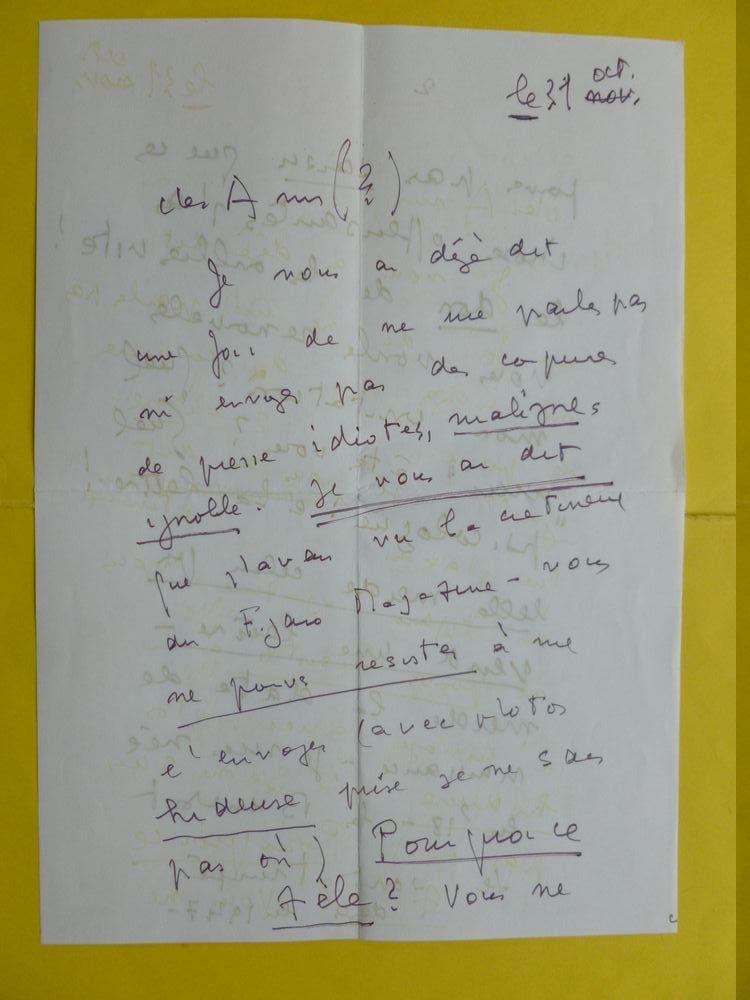 le 31 oct.
nov.
des Amis (?)
Je vous ai déjà dit
une fois de ne me parler pas
ni envoyer pas des copures
de presse idiotes, malignes
ignoble. Je vous ai dit
que j'avais vu la
du Figaro Magazine - vous
ne pouvez resister à me
l'envoyer (avec photos
hideuse prise je ne sais
pas où) Pourquoi ce
zèle? Vous ne